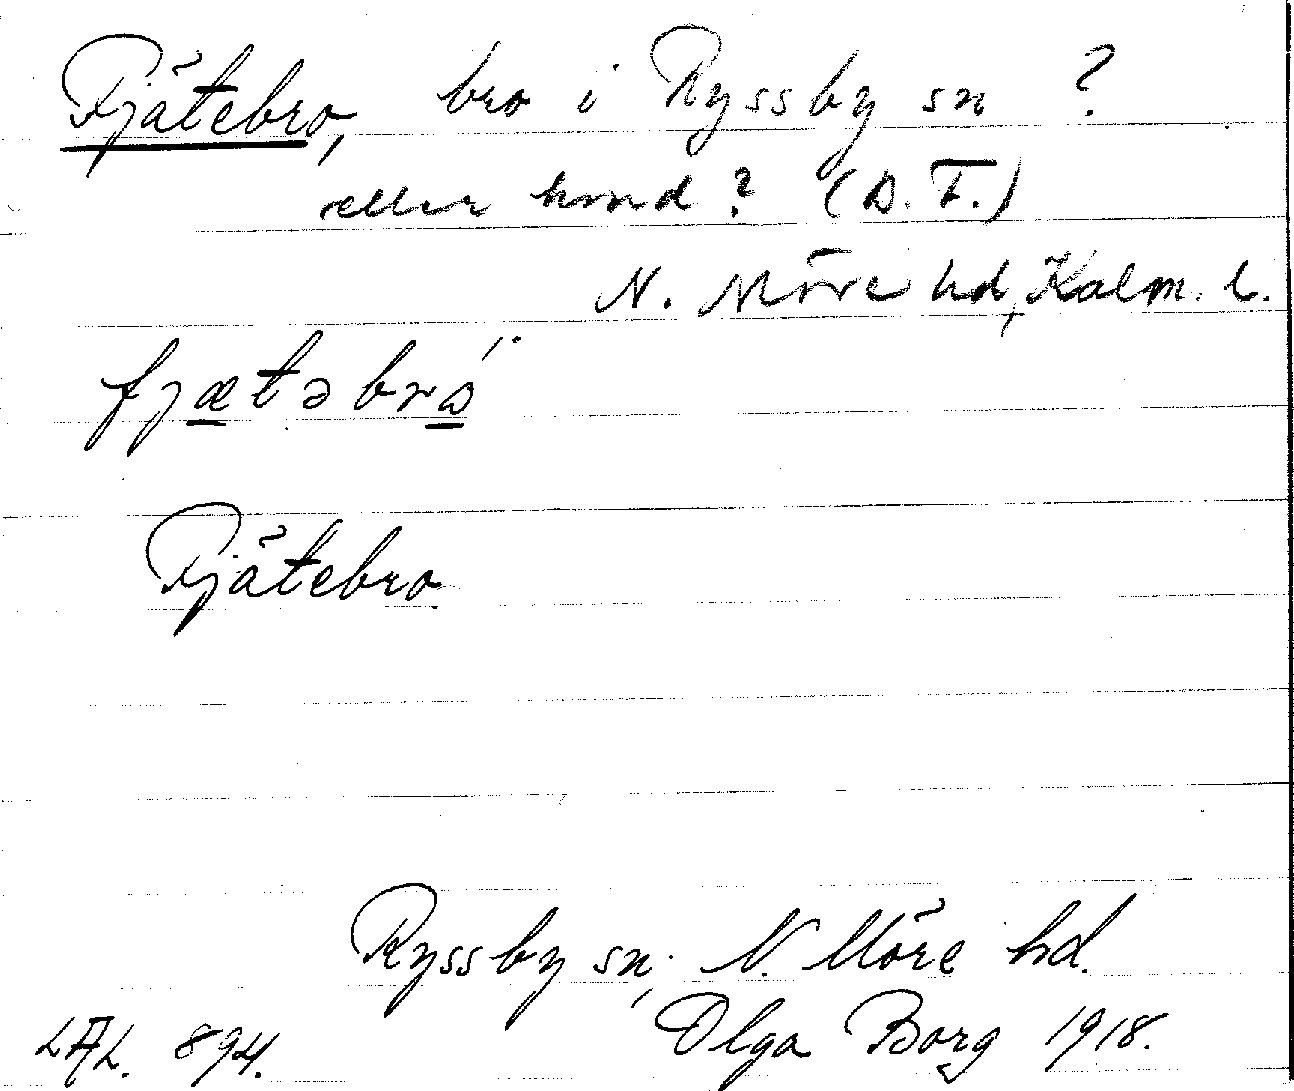 Fjätebro, bro i Ryssby sn ?
eller hmd? (D. F.)
N. Möre hd, Kalm. l.
fjætəbrω
Fjätebro
Ryssby sn, N. Möre hd.
Olga Borg 1918.
LAL. 894.